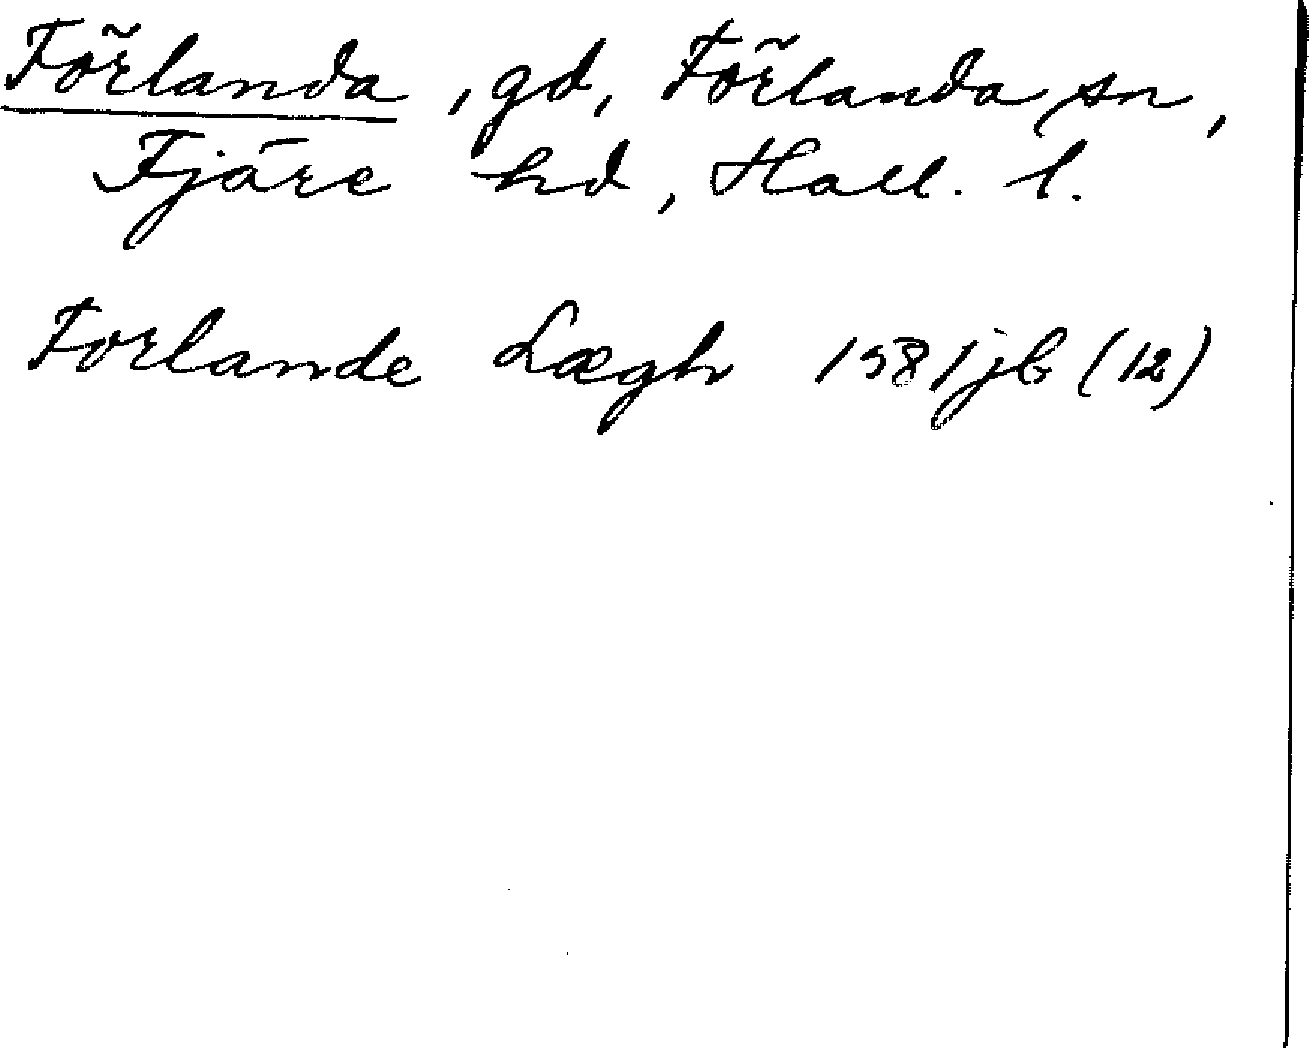 Förlanda, gd, Förlanda sn,
Fjäre hd, Hall. l.
Forlande Lægh 1581 jb (12)